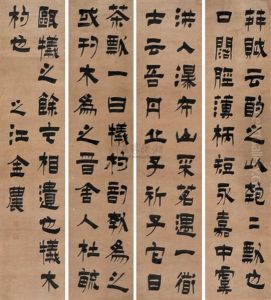 荈賦云酌之以匏匏瓢也
口闊脛薄柄短永嘉中虞
洪入瀑布山采茗遇一道
士云吾丹丘子祈子它日
茶瓢一曰犧杓瓠為之
或刊木為之晉舍人杜毓
甌犧之餘乞相遺也犧木
杓也 之江金農